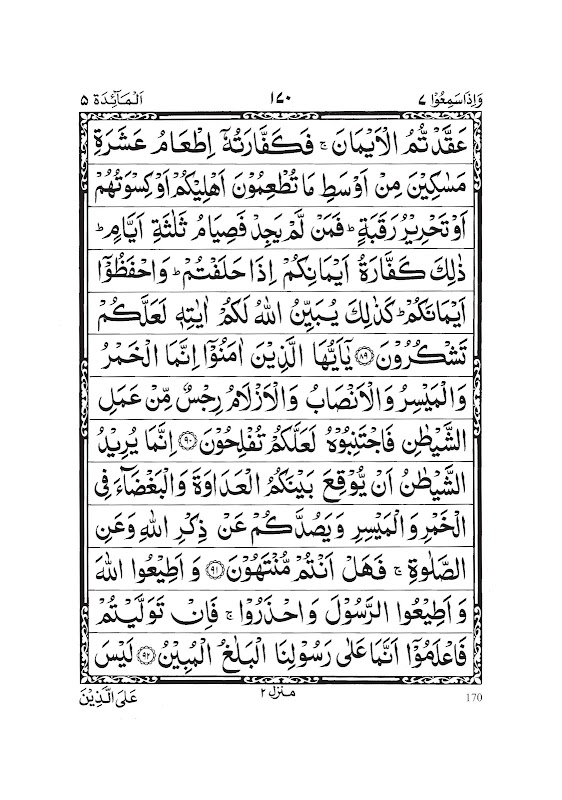 وَاِذَاسَمِعُوۡا ۷
۱۷۰
اَلۡمَآئِدَة ۵
عَقَّدۡتُّمُ الۡاَيۡمَانَ‌ ۚ فَكَفَّارَتُهٗۤ اِطۡعَامُ عَشَرَةِ
مَسٰكِيۡنَ مِنۡ اَوۡسَطِ مَا تُطۡعِمُوۡنَ اَهۡلِيۡكُمۡ اَوۡ كِسۡوَتُهُمۡ
اَوۡ تَحۡرِيۡرُ رَقَبَةٍ‌ ؕ فَمَنۡ لَّمۡ يَجِدۡ فَصِيَامُ ثَلٰثَةِ اَيَّامٍ‌ ؕ
ذٰلِكَ كَفَّارَةُ اَيۡمَانِكُمۡ اِذَا حَلَفۡتُمۡ‌ ؕ وَاحۡفَظُوۡۤا
اَيۡمَانَكُمۡ‌ ؕ كَذٰلِكَ يُبَيِّنُ اللّٰهُ لَكُمۡ اٰيٰتِهٖ لَعَلَّكُمۡ
تَشۡكُرُوۡنَ ﴿۸۹﴾ يٰۤاَيُّهَا الَّذِيۡنَ اٰمَنُوۡۤا اِنَّمَا الۡخَمۡرُ
وَالۡمَيۡسِرُ وَالۡاَنۡصَابُ وَالۡاَزۡلَامُ رِجۡسٌ مِّنۡ عَمَلِ
الشَّيۡطٰنِ فَاجۡتَنِبُوۡهُ لَعَلَّكُمۡ تُفۡلِحُوۡنَ ﴿۹۰﴾ اِنَّمَا يُرِيۡدُ
الشَّيۡطٰنُ اَنۡ يُّوۡقِعَ بَيۡنَكُمُ الۡعَدَاوَةَ وَالۡبَغۡضَآءَ فِى
الۡخَمۡرِ وَالۡمَيۡسِرِ وَيَصُدَّكُمۡ عَنۡ ذِكۡرِ اللّٰهِ وَعَنِ
الصَّلٰوةِ‌ ۚ فَهَلۡ اَنۡتُمۡ مُّنۡتَهُوۡنَ ﴿۹۱﴾ وَاَطِيۡعُوا اللّٰهَ
وَاَطِيۡعُوا الرَّسُوۡلَ وَاحۡذَرُوۡا‌ ۚ فَاِنۡ تَوَلَّيۡتُمۡ
فَاعۡلَمُوۡۤا اَنَّمَا عَلٰى رَسُوۡلِنَا الۡبَلٰغُ الۡمُبِيۡنُ ﴿۹۲﴾ لَيۡسَ
منزل ۲
عَلَى الَّذِيۡنَ
170